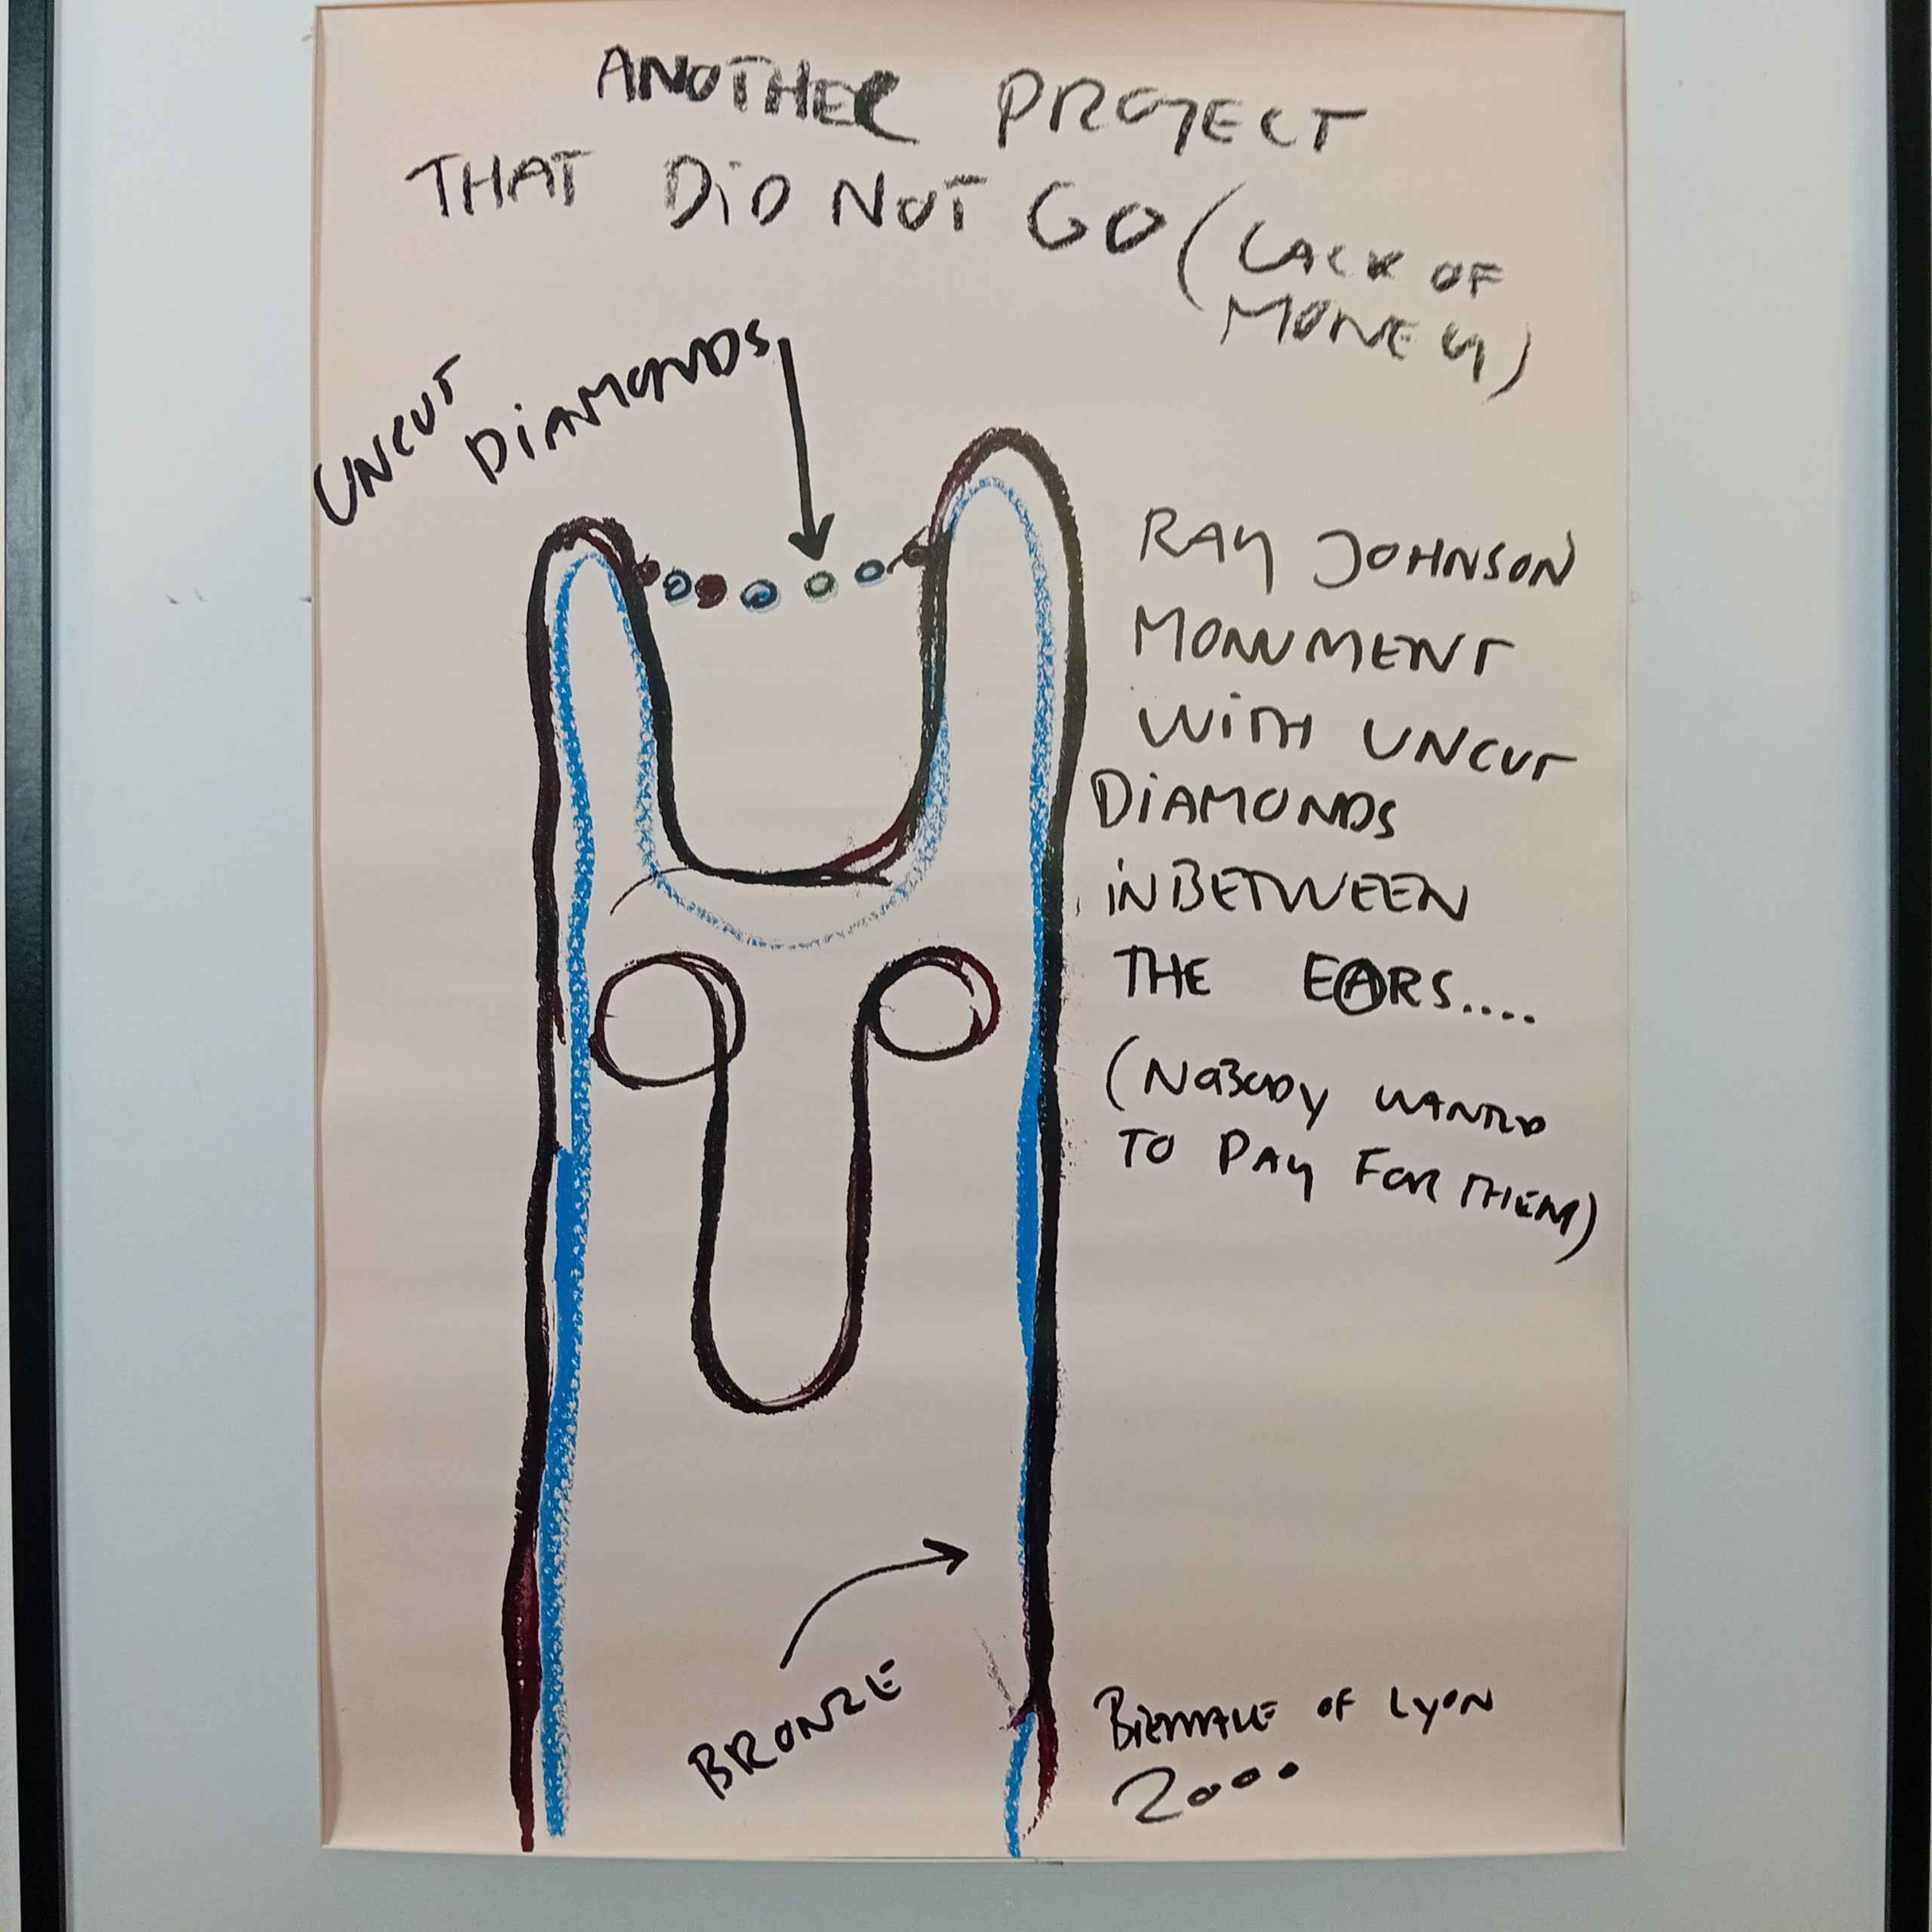 ANOTHER PROJECT
THAT DID NOT GO (LACK OF
MONEY)
UNCUT
DIAMONDS
RAY JOHNSON
MONUMENT
WITH UNCUT
DIAMONDS
INBETWEEN
THE EARS....
(NOBODY WANTED
TO PAY FOR THEM)
BRONZE
BIENNALE OF LYON
2000